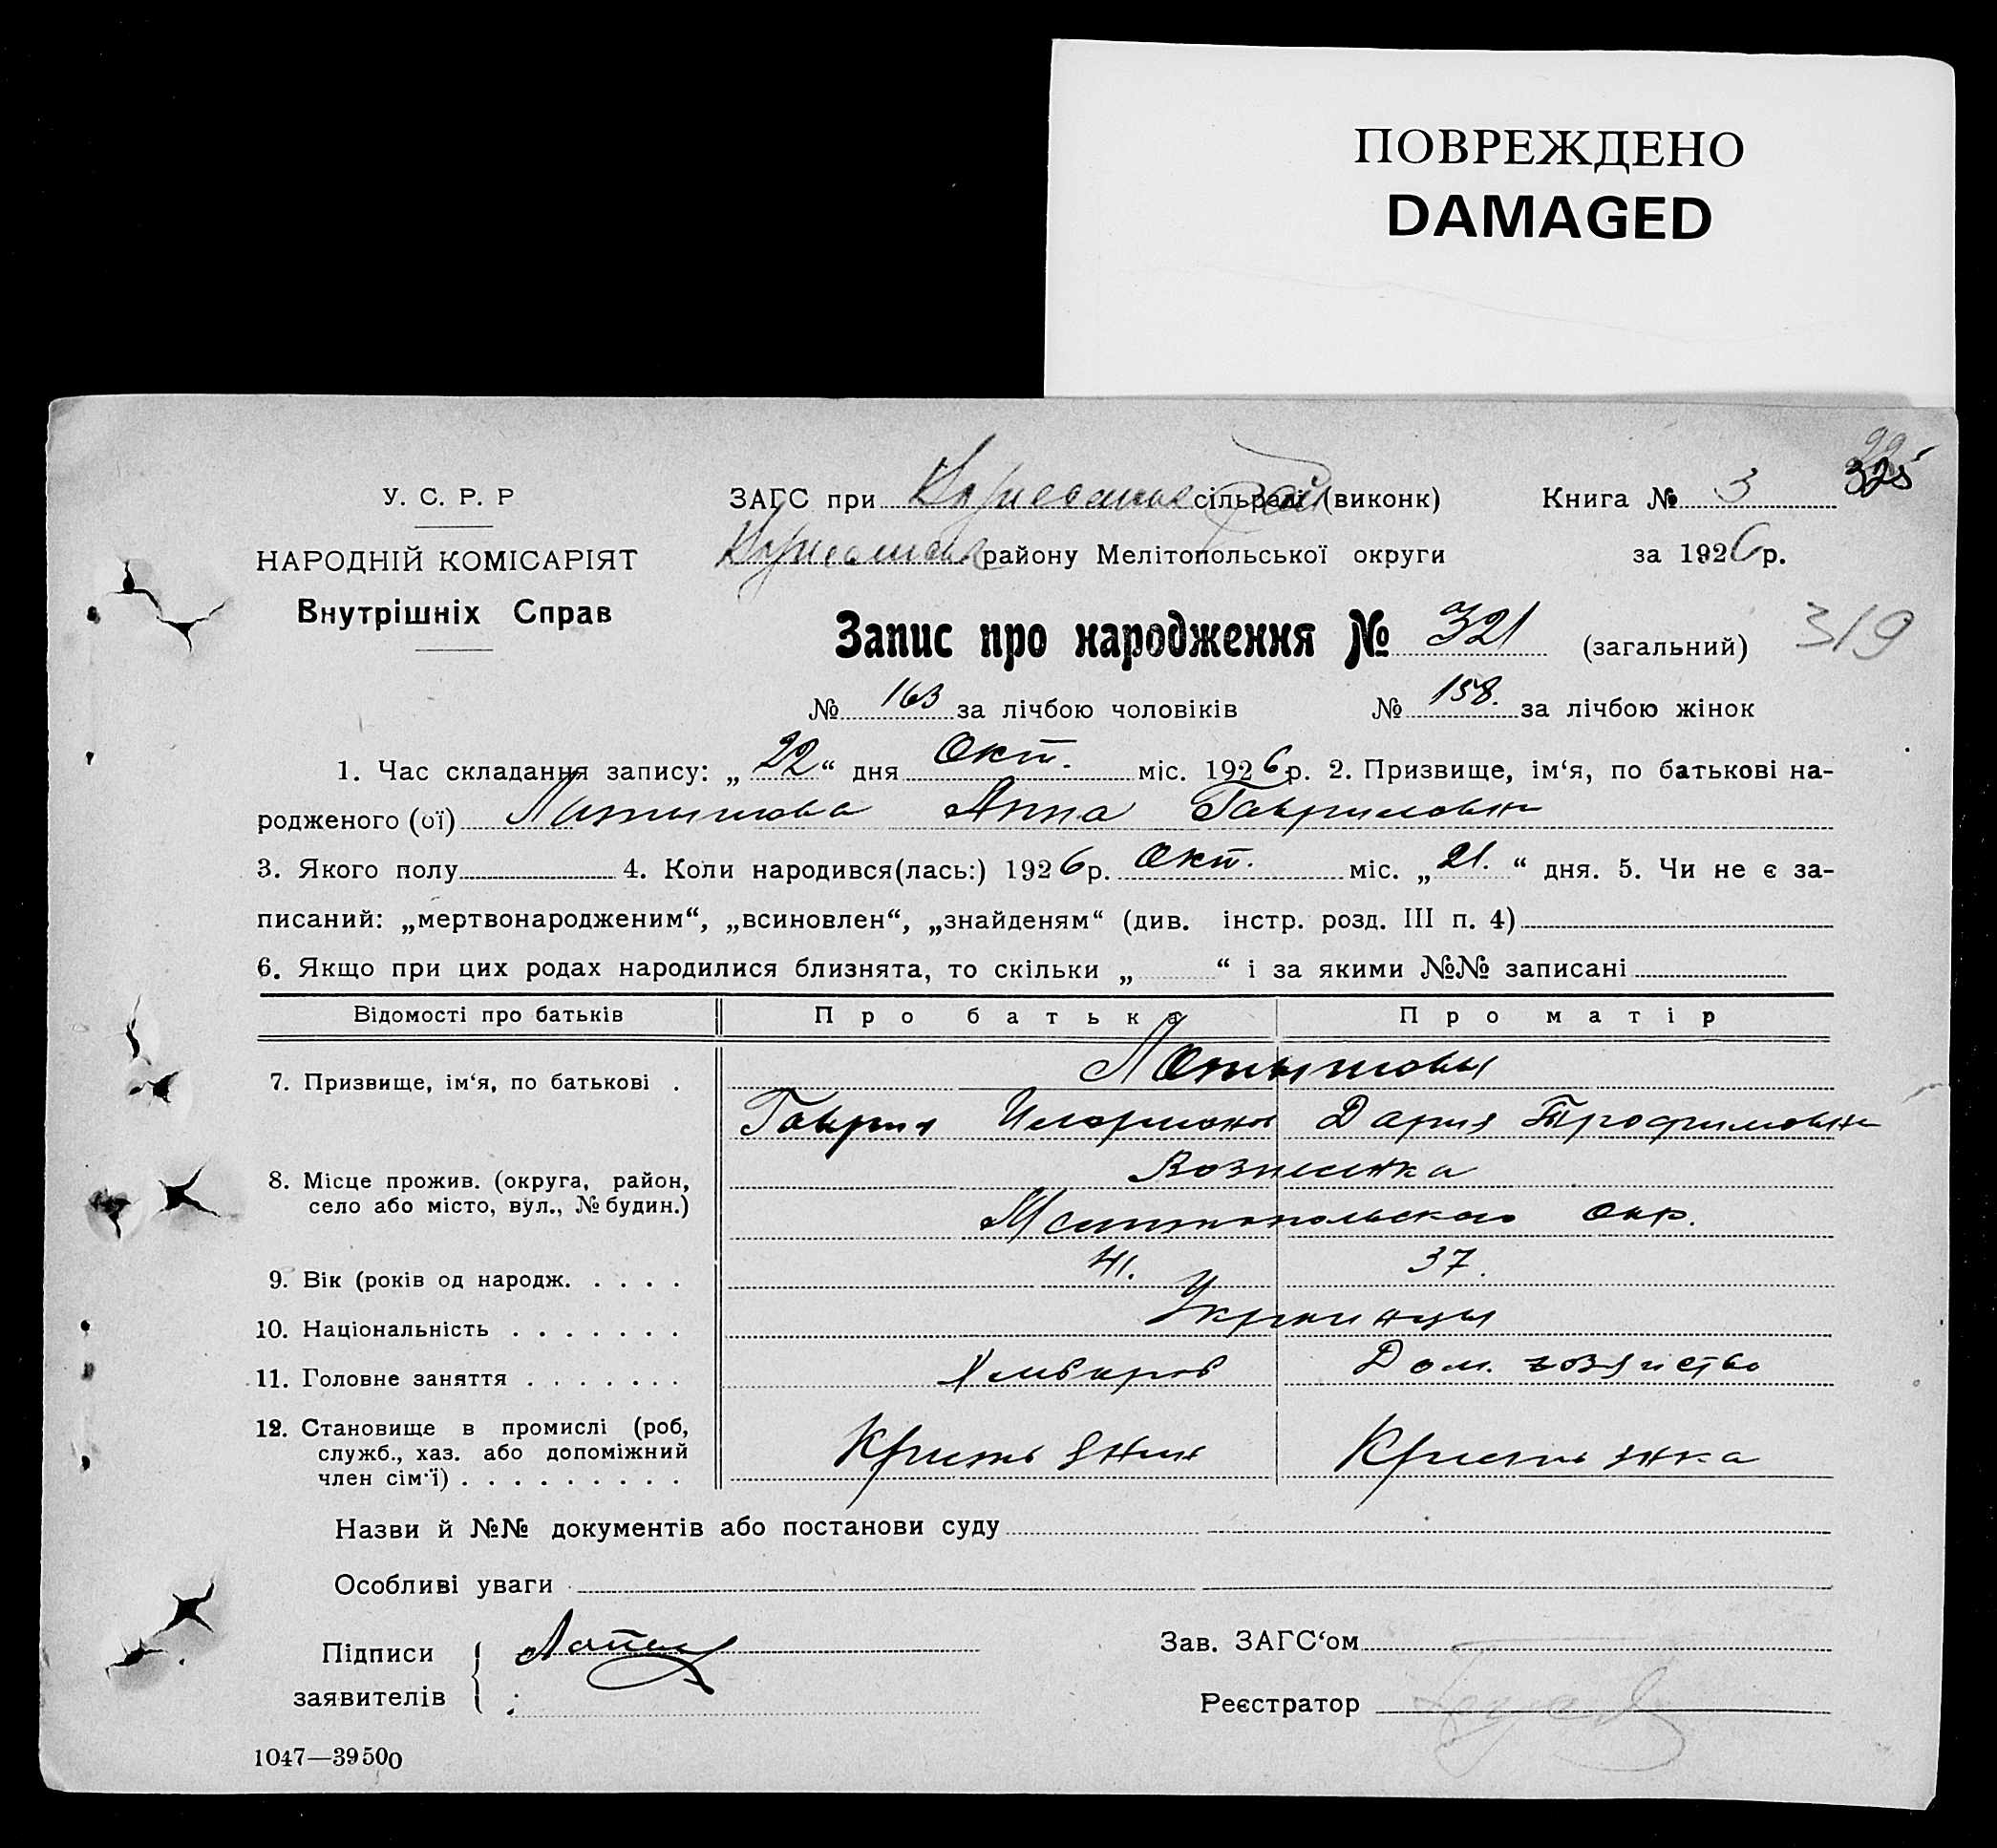 ПОВРЕЖДЕНО
DAMAGED
325
У. С. Р. Р
НАРОДНІЙ КОМІСАРІЯТ
Внутрішніх Справ
ЗАГС при сільраді (виконк) Книга № 3
району Мелітопольської округи за 1926 р.
Запис про народження № 321 (загальний) 319
№ 163 за лічбою чоловіків № 158. за лічбою жінок
1. Час складання запису: „ 22 “ дня Окт. міс. 1926 р. 2. Призвище, ім‘я, по батькові на-
родженого (ої) Латышова Анна Гавриловн
3. Якого полу 4. Коли народився(лась:) 1926 р. Окт. міс. „ 21. “ дня. 5. Чи не є за-
писаний: „мертвонародженим“, „всиновлен“, „знайденям“ (див. інстр. розд. III п. 4)
6. Якщо при цих родах народилися близнята, то скільки „ “ і за якими №№ записані
Відомості про батьків Про батька Про матір
7. Призвище, ім‘я, по батькові . Латышовы
Гаврил Иларионов Дария Трофимовн
8. Місце прожив. (округа, район, Вознесенка
село або місто, вул., № будин.) Мелитопольского окр.
9. Вік (років од народж. . . . . 41. 37.
10. Національність . . . . . . . Украинцы
11. Головне заняття . . . . . . . Хлебороб Дом. хозяйство
12. Становище в промислі (роб,
служб., хаз. або допоміжний Крестьянин Крестьянка
член сім‘ї) . . . . . . . . .
Назви й №№ документів або постанови суду
Особливі уваги
Підписи Зав. ЗАГС‘ом
заявителів Реєстратор
1047—39500